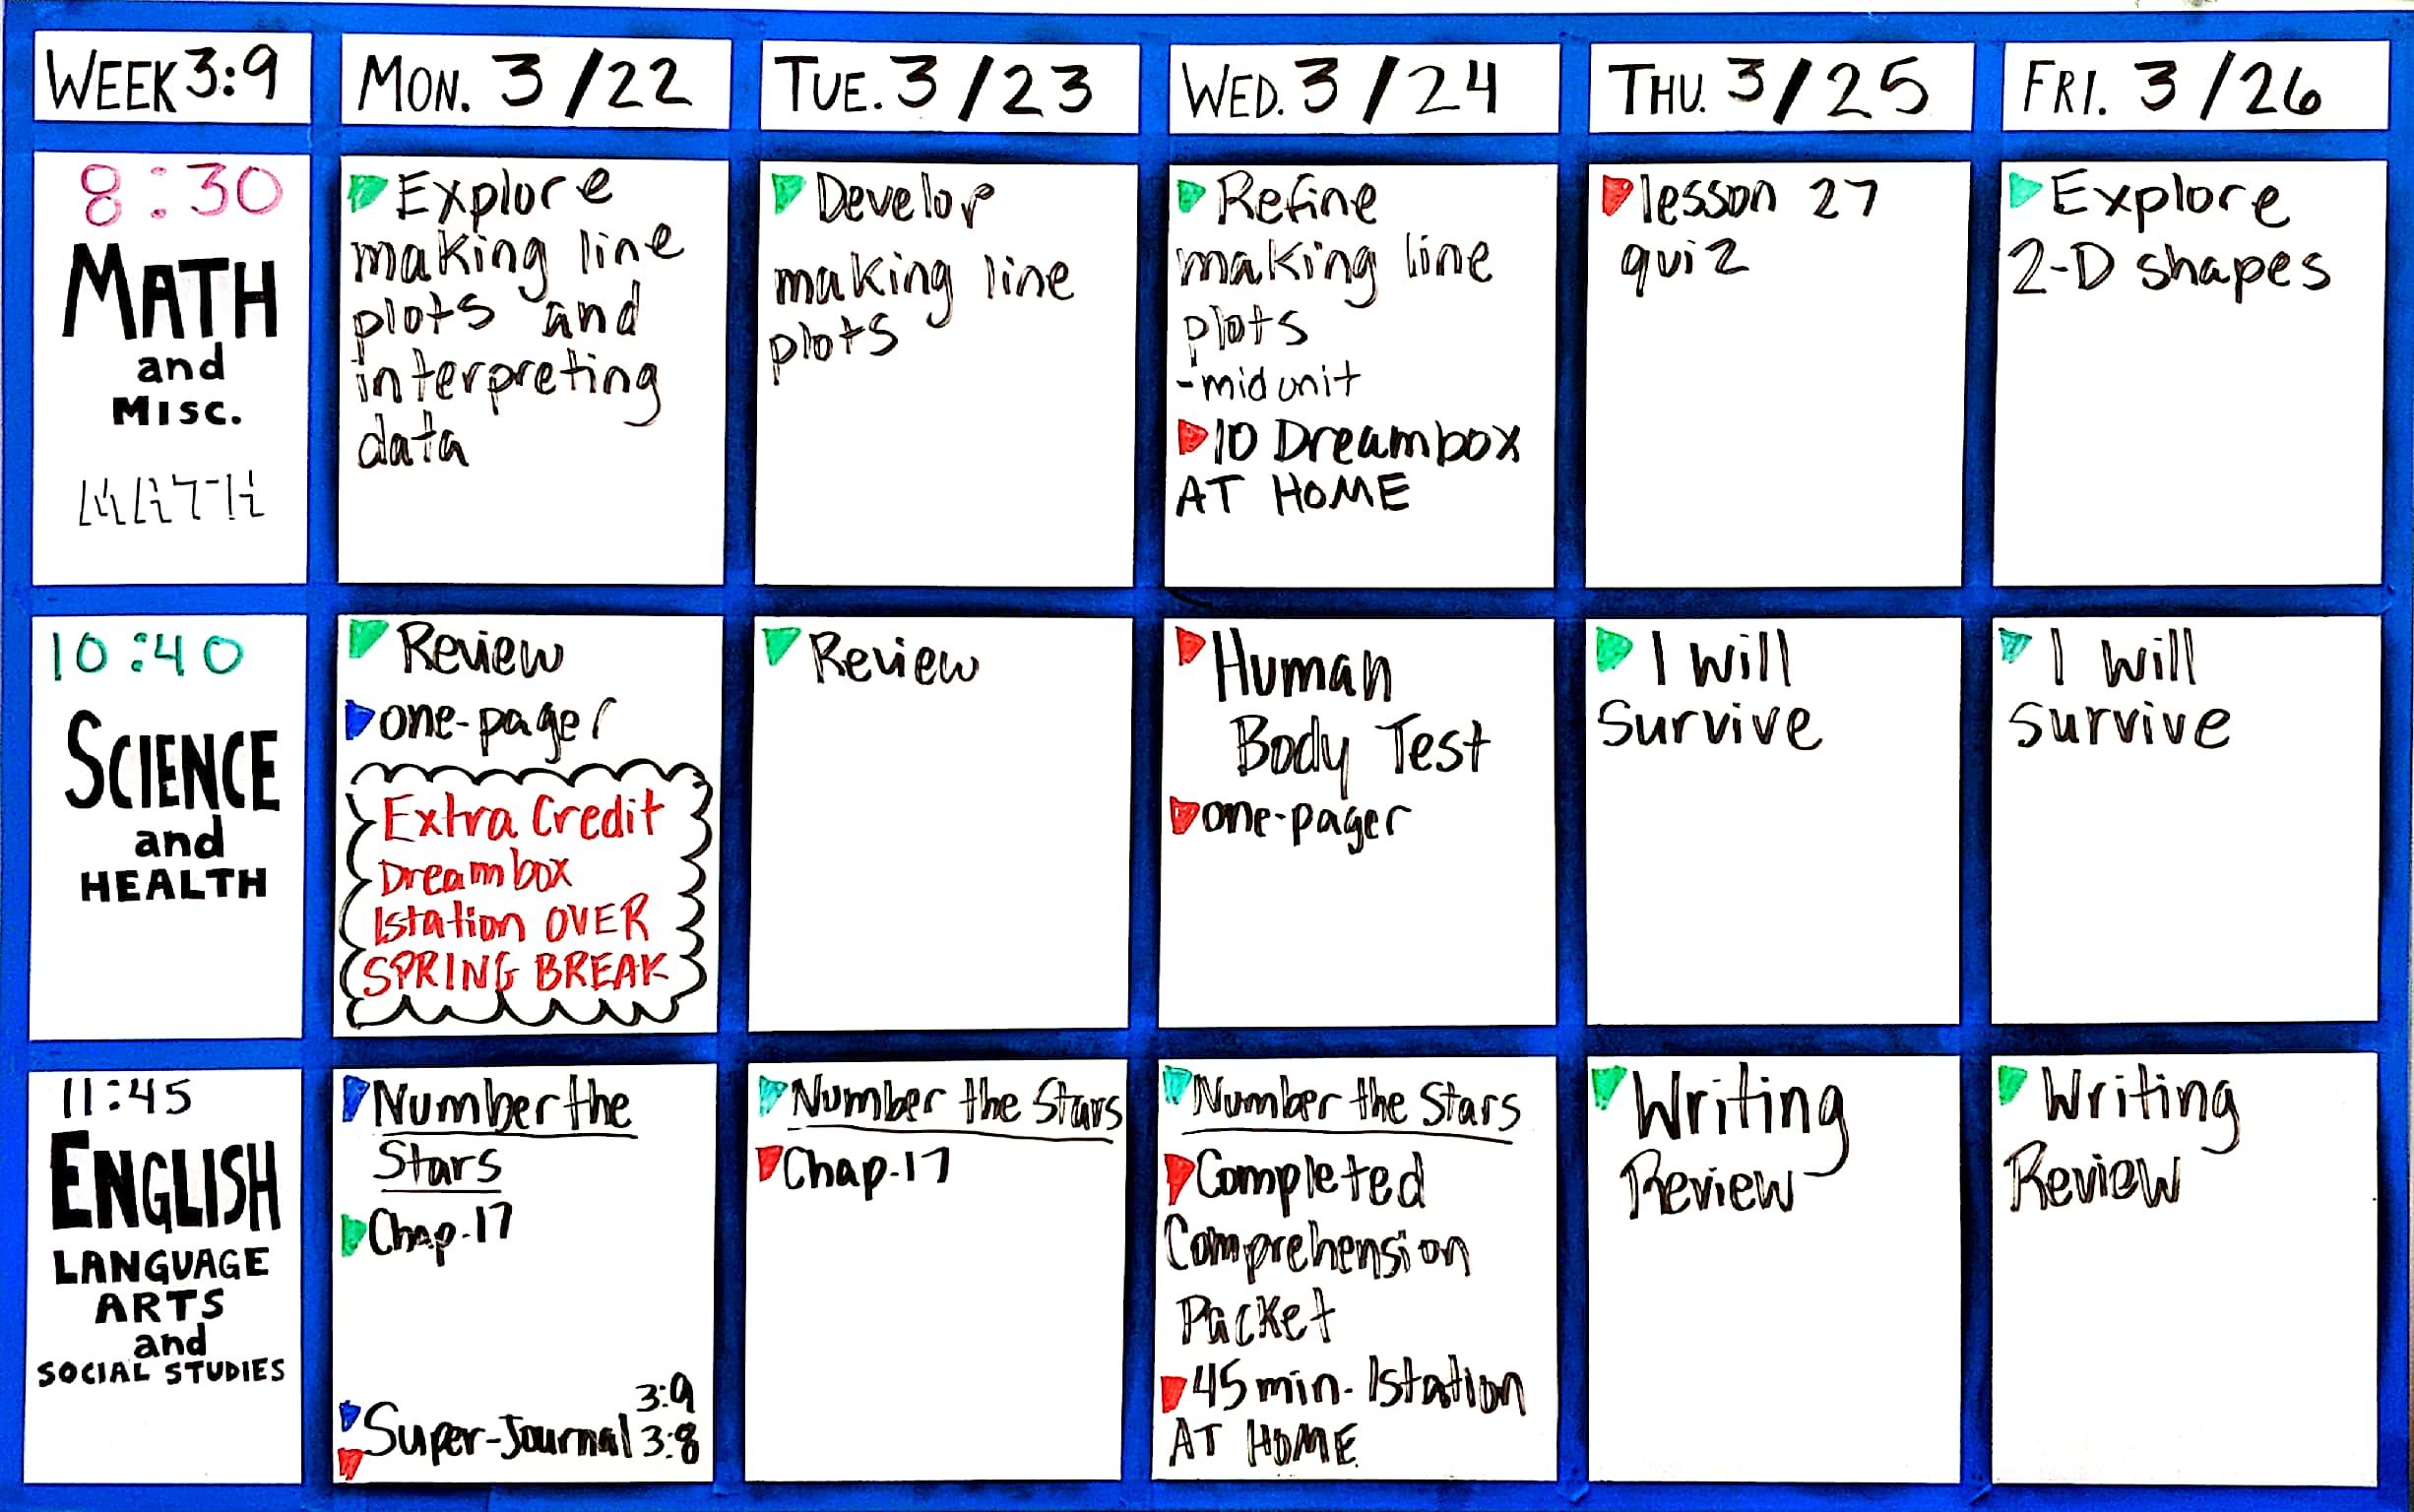 WEEK 3:9
MON. 3/22
TUE. 3/23
WED. 3/24
THU. 3/25
FRI. 3/26
8:30
MATH
and
MISC.
MATH
Explore
making line
plots and
interpreting
data
Develop
making line
plots
Refine
making line
plots
-mid unit
10 Dreambox
AT HOME
lesson 27
quiz
Explore
2-D shapes
10:40
SCIENCE
and
HEALTH
Review
one-pager
Extra Credit
Dreambox
Istation OVER
SPRING BREAK
Review
Human
Body Test
one-pager
I will
Survive
I will
survive
11:45
ENGLISH
LANGUAGE
ARTS
and
SOCIAL STUDIES
Number the
Stars
Chap. 17
3:9
Super-Journal 3:8
Number the Stars
Chap. 17
Number the Stars
Completed
Comprehension
Packet
45 min. Istation
AT HOME
Writing
Review
Writing
Review